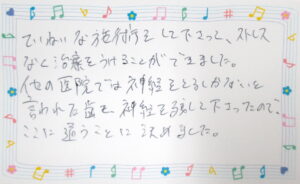 ていねいな施術をして下さって、ストレス
なく治療をうけることができました。
他の医院では神経をとるしかないと
言われた歯も、神経を残して下さったので、
ここに通うことに決めました。